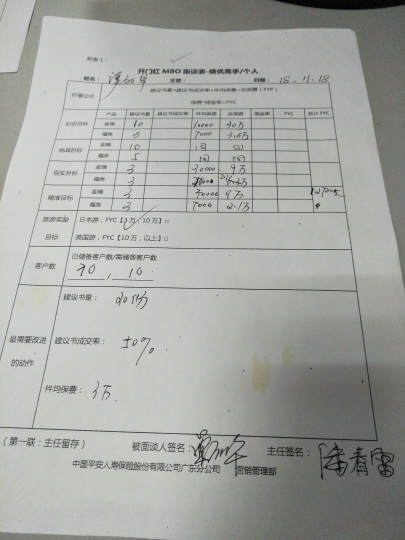 附表1
开门红MBO面谈表-绩优高手/个人
姓名： 主管： 日期：18.11.18
价值公式 建议书量×建议书成交率×件均保费=总保费（FYP）
保费*佣金率=FYC
产品 建议书量 成交率 件均保费 总保费 佣金率 FYC 合计FYC
必达目标 金瑞 10 10000 30万
福类 5 7000 3.5万
挑战目标 金瑞 10 同 同
福类 5 同 同
现实目标 金瑞 3 30000 9万
福类 3
精准目标 金瑞 3 30000 9万
福类 3 7000 2.1万
旅游奖励 日本游，FYC【3万/10万】□
目标 美国游，FYC【20万，以上】□
客户数 已储备客户数/需储备客户数
70，10
最需要改进的动作
建议书量：20份
建议书成交率：50%
件均保费：3万
（第一联：主任留存） 被面谈人签名： 主任签名：潘青雷
中国平安人寿保险股份有限公司广东分公司 营销管理部